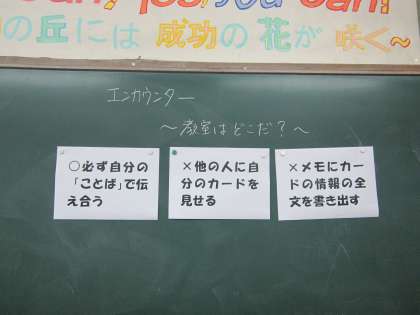 you can!
の丘には 成功の花が 咲く～
エンカウンター
～教室はどこだ？～
○必ず自分の
「ことば」で伝
え合う
×他の人に自
分のカードを
見せる
×メモにカー
ドの情報の全
文を書き出す